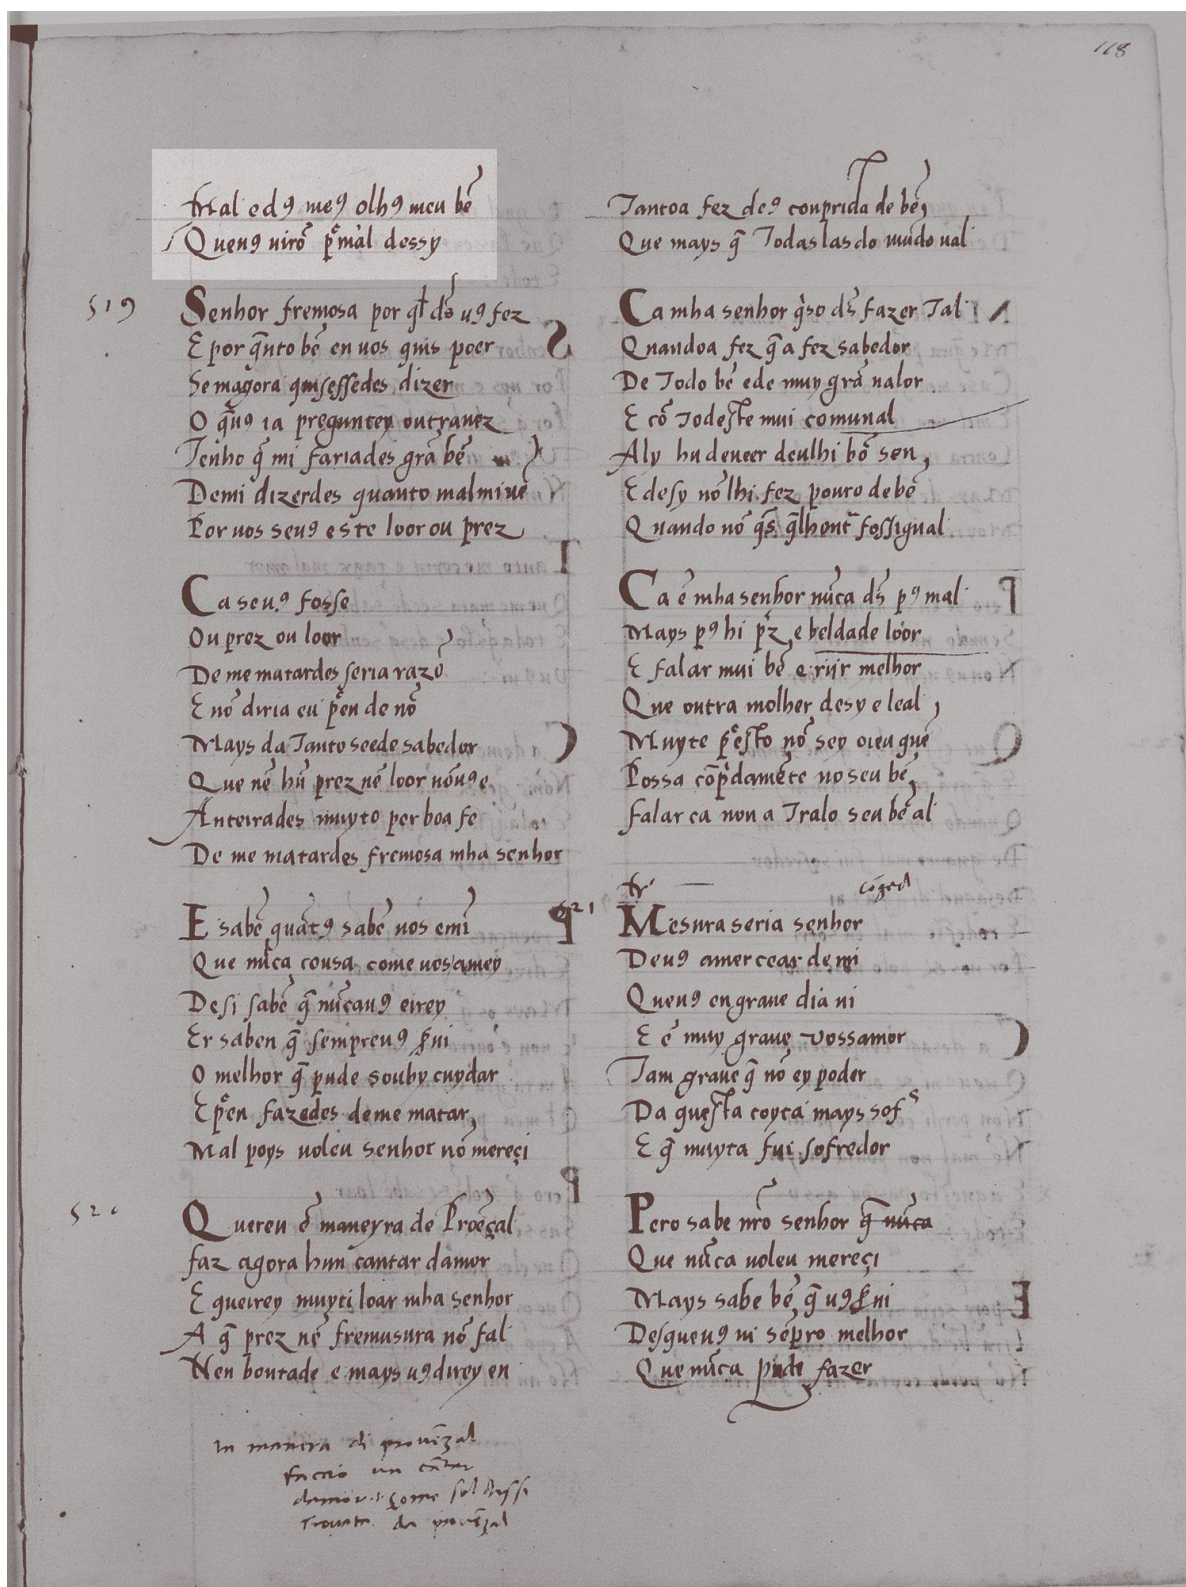 118
Mal edꝯ meꝯ olhꝯ meu bẽ
Quenꝯ uirõ ꝑ mal dessy
519
Senhor fremosa por q̃l ds̃ uꝯ fez
E por q̃nto bẽ en uos quis poer
Se magora quisessedes dizer
O q̃uꝯ ia preguntey outra uez
Tenho q̃ mi fariades grã bẽ
De mi dizerdes quanto mal mi uẽ
Por uos seuꝯ este loor ou prez
Ca seuꝯ fosse
Ou prez ou loor
De me matardes seria razõ
E nõ diria eu ꝑen de nõ
Mays da Tanto seede sabedor
Que nẽ hũ prez nẽ loor nõuꝯ e
Anteirades muyto per boa fe
De me matardes fremosa mha senhor
E sabẽ quãtꝯ sabẽ uos emĩ
Que nũca cousa come uos amey
Desi sabẽ q̃ nũcauꝯ eirey
Er saben q̃ sempreuꝯ s̃ui
O melhor q̃ pude souby cuydar
E ꝑen fazedes de me matar
Mal poys uoleu senhor nõ mereçi
520
Quereu ẽ maneyra de Proẽçal
faz agora hun cantar damor
E queirey muyti loar mha senhor
A q̃ prez nẽ fremusura nõ fal
Nen bontade e mays uꝯ direy en
In manera di prouẽzal
faccio un cãtar
damor
Tanto a fez deꝯ conprida de bẽ
Que mays q̃ Todas las do mũdo ual
Ca mha senhor q̃so ds̃ fazer Tal
Quando a fez q̃ a fez sabedor
De Todo bẽ e de muy grã ualor
E cõ Todeste mui comunal
Aly hu deueer deulhi bõ sen
E desy nõ lhi fez pouco de bẽ
Quando nõ q̃s q̃ lhout̃ fossigual
Ca ẽ mha senhor nũca ds̃ pꝯ mal
Mays pꝯ hi p̃z e beldade loor
E falar mui bẽ e riir melhor
Que outra molher desy e leal
Muyte ꝑ esto nõ sey oieu quẽ
Possa cõp̃damẽte no seu bẽ
falar ca non a Tralo seu bẽ al
521
tr̃
cõged
Mesura seria senhor
Deuꝯ amercear de mi
Quenꝯ en graue dia ui
E ẽ muy graue uossamor
Tam graue q̃ nõ ey poder
Da questa coyta mays sof̃
E q̃ muyta fui sofredor
Pero sabe nr̃o senhor q̃ nũca
Que nũca uoleu mereçi
Mays sabe bẽ q̃ uꝯ s̃ui
Desqueuꝯ ui sẽpro melhor
Que nũca pude fazer